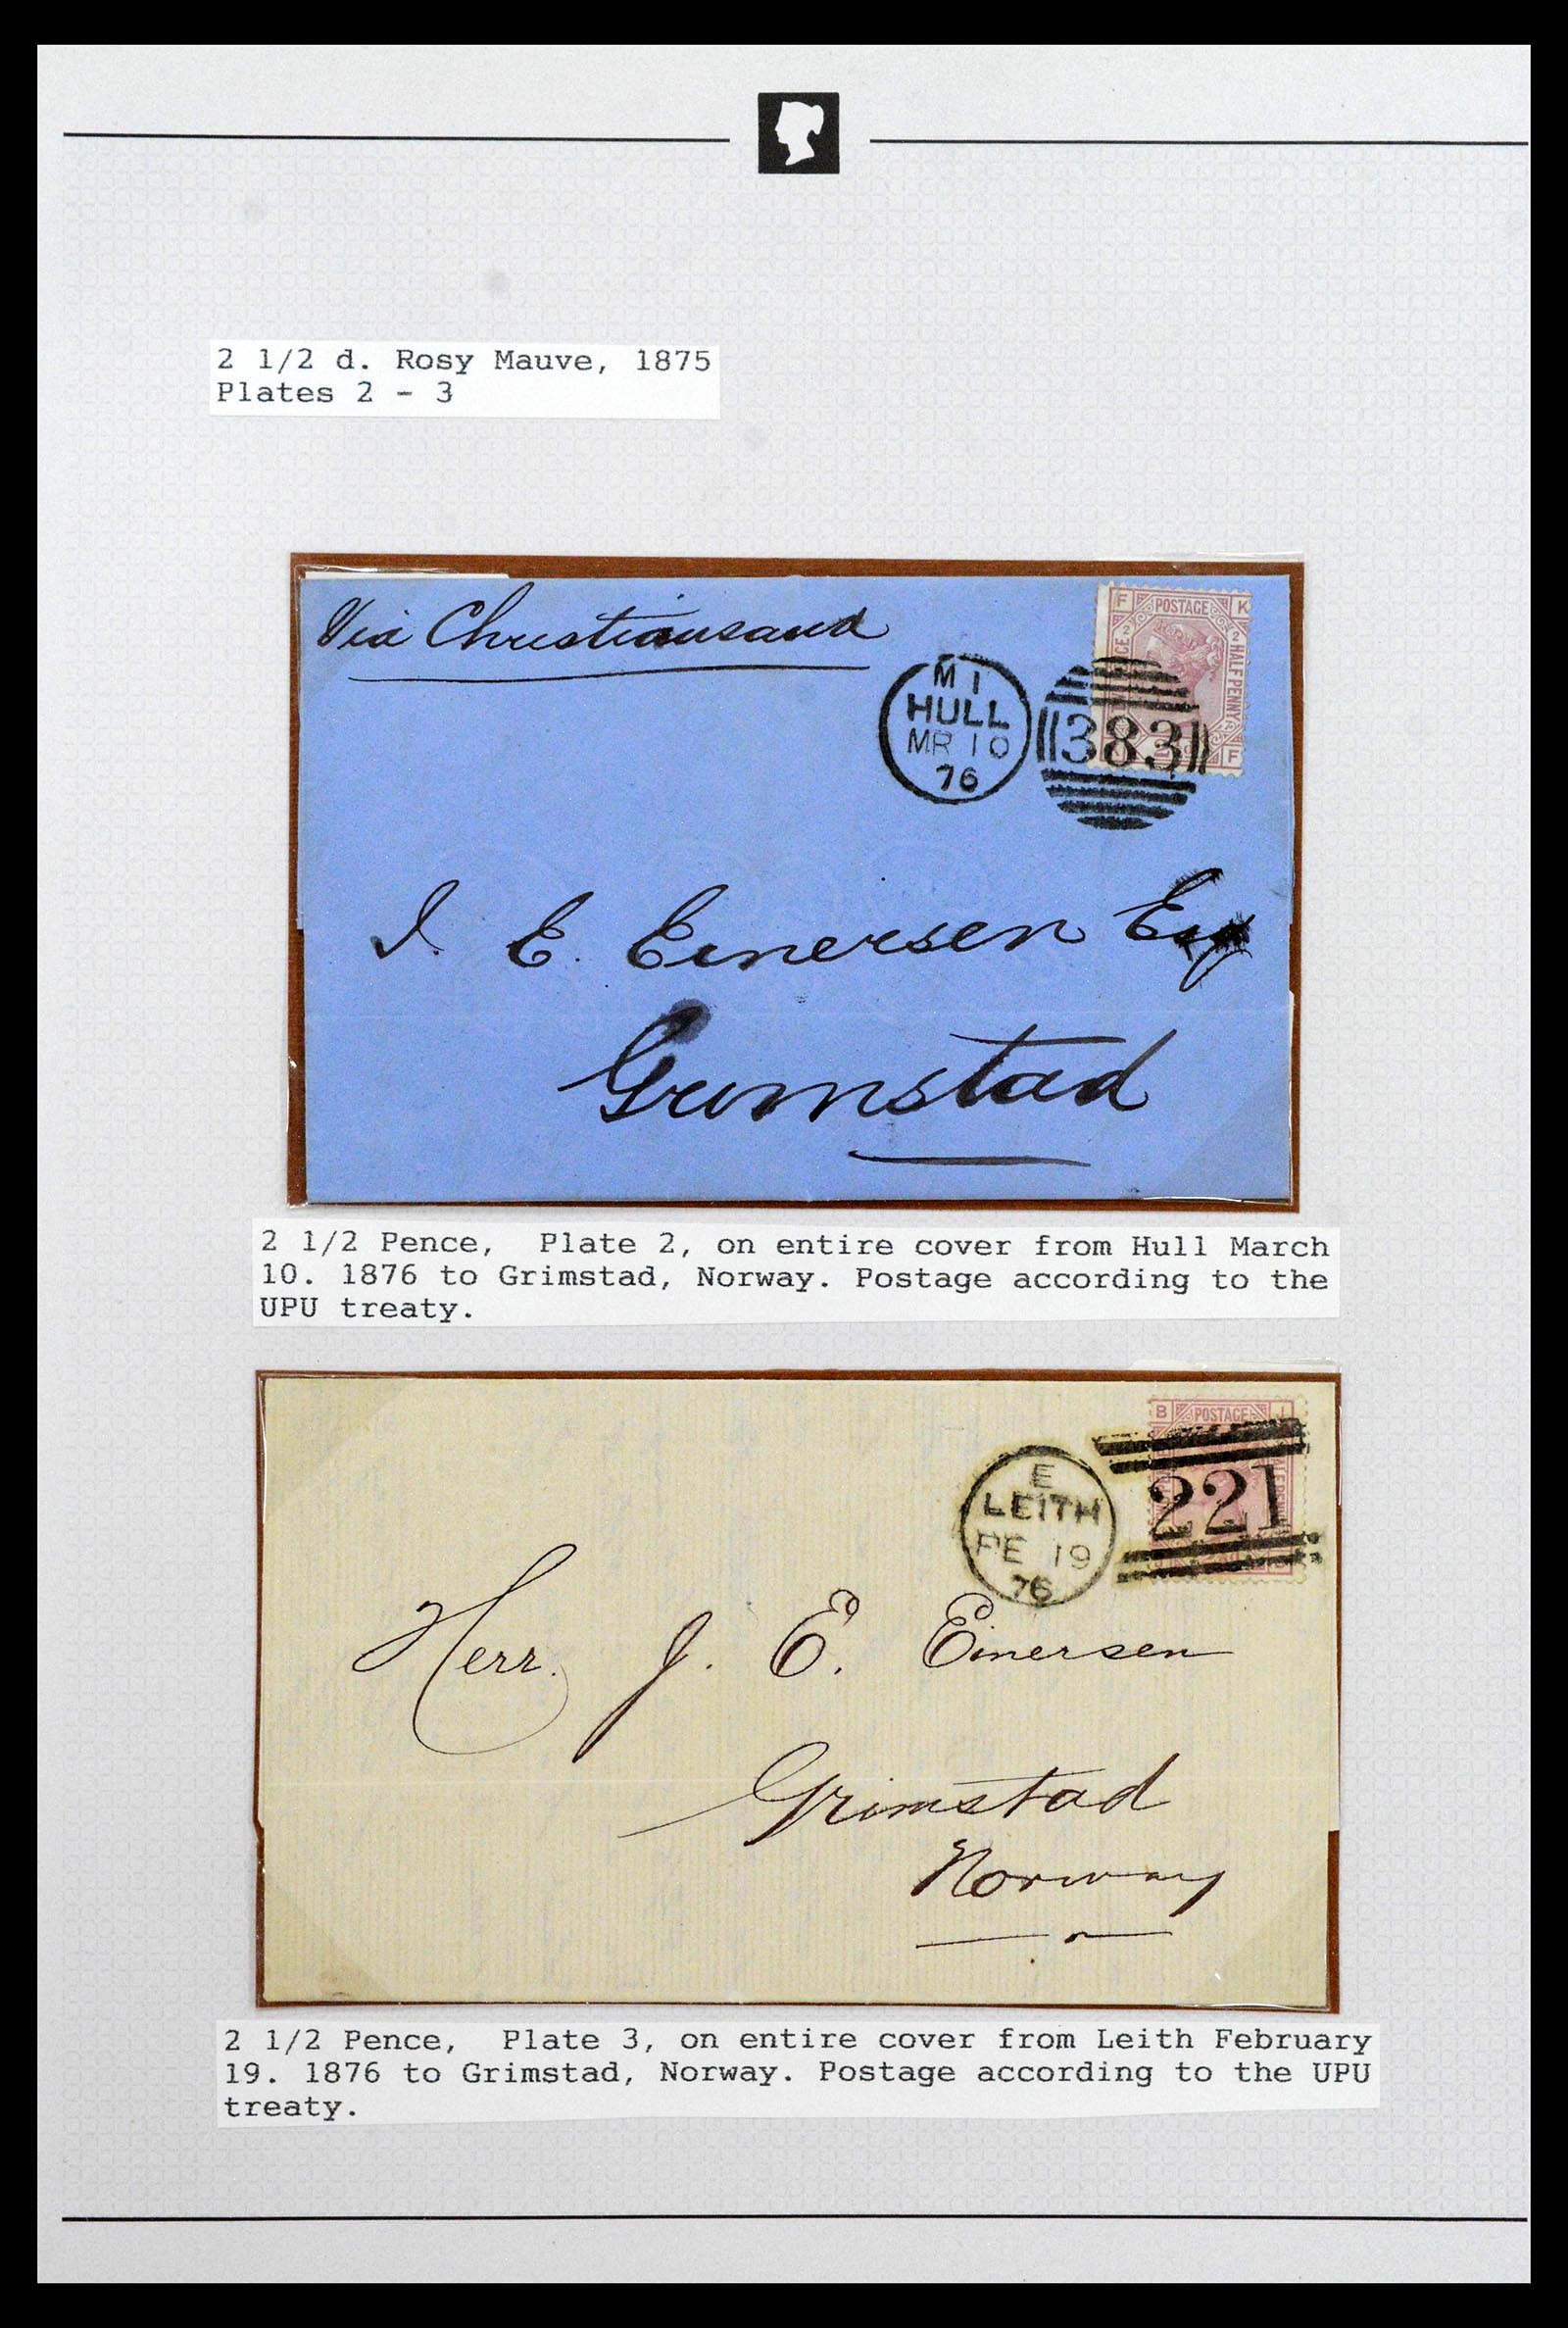 2 1/2 d. Rosy Mauve, 1875
Plates 2 - 3
Via Christiansand
F POSTAGE K
2 2
HALF PENNY
F
M 1
HULL
MR 10
76
383
I. E. Einersen Esq
Grimstad
2 1/2 Pence, Plate 2, on entire cover from Hull March
10. 1876 to Grimstad, Norway. Postage according to the
UPU treaty.
B POSTAGE J
E
LEITH
FE 19
76
221
Herr. J. E. Einersen
Grimstad
Norway
2 1/2 Pence, Plate 3, on entire cover from Leith February
19. 1876 to Grimstad, Norway. Postage according to the UPU
treaty.